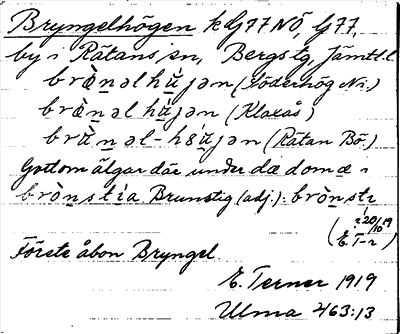 Bryngelhögen k G77NÖ, G77,
by i Rätans sn, Bergs tg, Jämtl. l.
brö̀n̠əl hʉ̠́jən (Söderhög Ni.)
brö̀n̠əl hʉ̠́jən (Klaxås)
brʉ̀n̠əl-hʉ̠́jən (Rätan Bö.)
Gottom älgar där under dæ domæ i
brònstia. Brunstig (adj.): brònstɪ
20/10 19
(E. T-r)
Förete åbon Bryngel
E. Terner 1919
Ulma 463:13